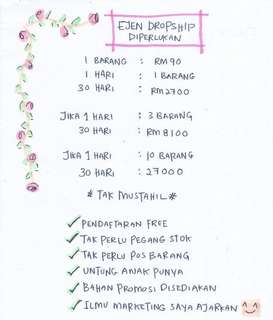 EJEN DROPSHIP
DIPERLUKAN
1 BARANG : RM90
1 HARI : 1 BARANG
30 HARI : RM2700
JIKA 1 HARI : 3 BARANG
30 HARI : RM8100
JIKA 1 HARI : 10 BARANG
30 HARI : 27000
* TAK MUSTAHIL *
✓ PENDAFTARAN FREE
✓ TAK PERLU PEGANG STOK
✓ TAK PERLU POS BARANG
✓ UNTUNG ANAK PUNYA
✓ BAHAN PROMOSI DISEDIAKAN
✓ ILMU MARKETING SAYA AJARKAN